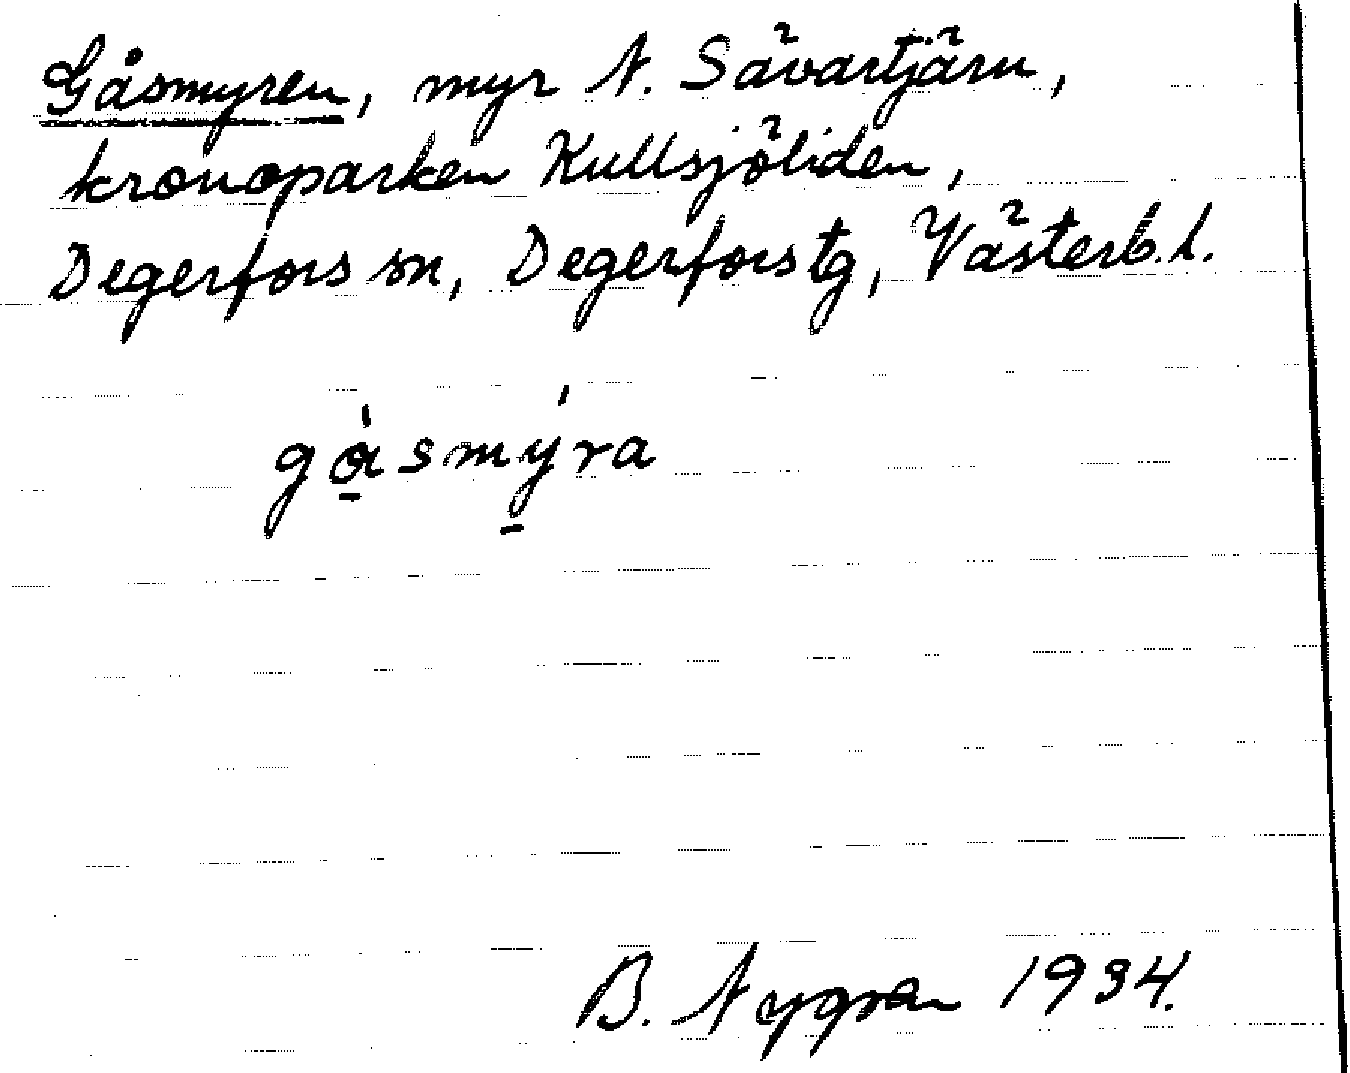 Gåsmyren, myr N. Sävartjärn,
kronoparken Kullsjöliden,
Degerfors sn, Degerfors tg, Västerb. l.
gὰ̱smý̱ra
B. Nygren 1934.